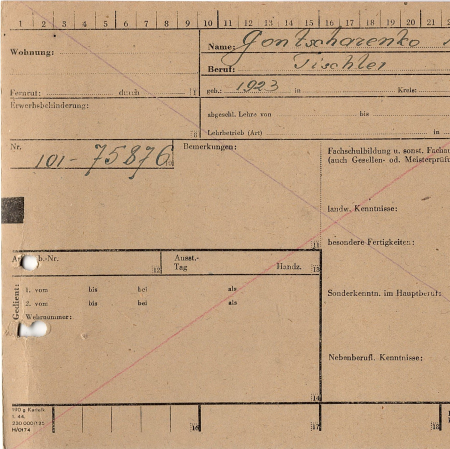 1 2 3 4 5 6 7 8 9 10 11 12 13 14 15 16 17 18 19 20 21
Wohnung:
Name: Gontscharenko
Beruf: Tischler
Fernruf: durch 1
geb.: 1923 in Kreis:
Erwerbsbehinderung:
abgeschl. Lehre von bis
8 Lehrbetrieb (Art) in
Nr. 101-75876
Bemerkungen:
Fachschulbildung u. sonst.
(auch Gesellen- od. Meisterprüf
landw. Kenntnisse:
besondere Fertigkeiten:
11
b.-Nr. 12
Ausst.-
Tag Handz. 13
Gedient:
1. vom bis bei als
2. vom bis bei als
Wehrnummer:
Sonderkenntn. im Hauptberuf:
Nebenberufl. Kenntnisse:
14
190 g Karteik.
16 17 18